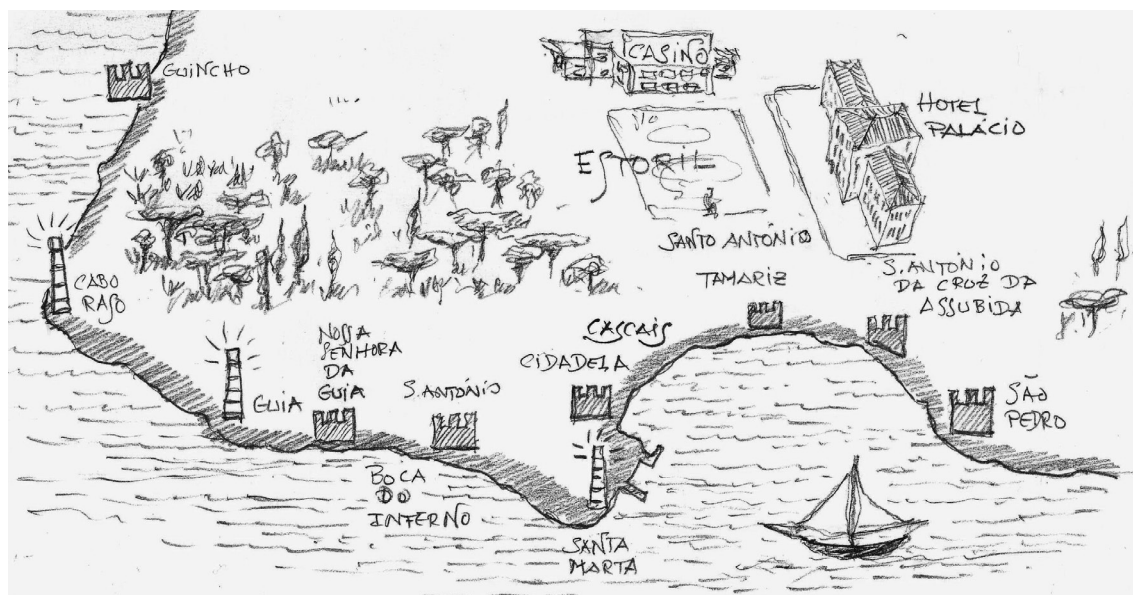 GUINCHO
CASINO
HOTEL
PALÁCIO
ESTORIL
SANTO ANTÓNIO
TAMARIZ
S. ANTÓNIO
DA CRUZ DA
ASSUBIDA
CABO
RASO
NOSSA
SENHORA
DA
GUIA
GUIA
S. ANTÓNIO
CASCAIS
CIDADELA
SÃO
PEDRO
BOCA
DO
INFERNO
SANTA
MARTA